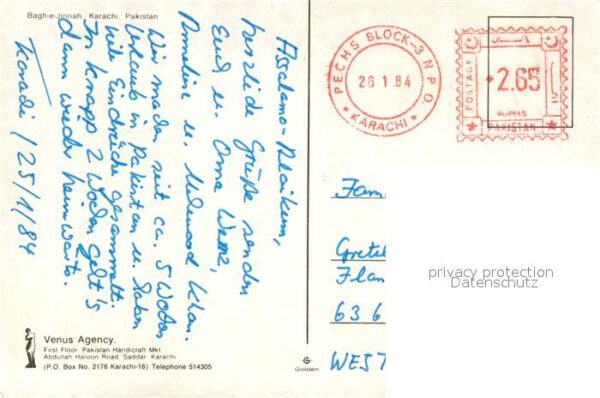 Bagh-e-Jinnah, Karachi, Pakistan
Assalamo-Alaikum,
herzliche Grüße senden
Euch u. Oma
Annelise u. Khan.
Wir machen seit ca. 5 Wochen
Urlaub in Pakistan u. haben
viele Eindrücke gesammelt.
In knapp 2 Wochen geht's
dann wieder heimwärts.
Karachi / 25/1/84
Venus Agency.
First Floor, Pakistan Handicraft Mkt
Abdullah Haroon Road, Saddar, Karachi
(P.O. Box No. 2176 Karachi-18) Telephone 514305
Golden
PECHS BLOCK-3 N.P.O.
26 1 84
KARACHI
POSTAGE
2.65
RUPEES
PAKISTAN
Fam
Gretel
Flan
636
WEST
privacy protection
Datenschutz